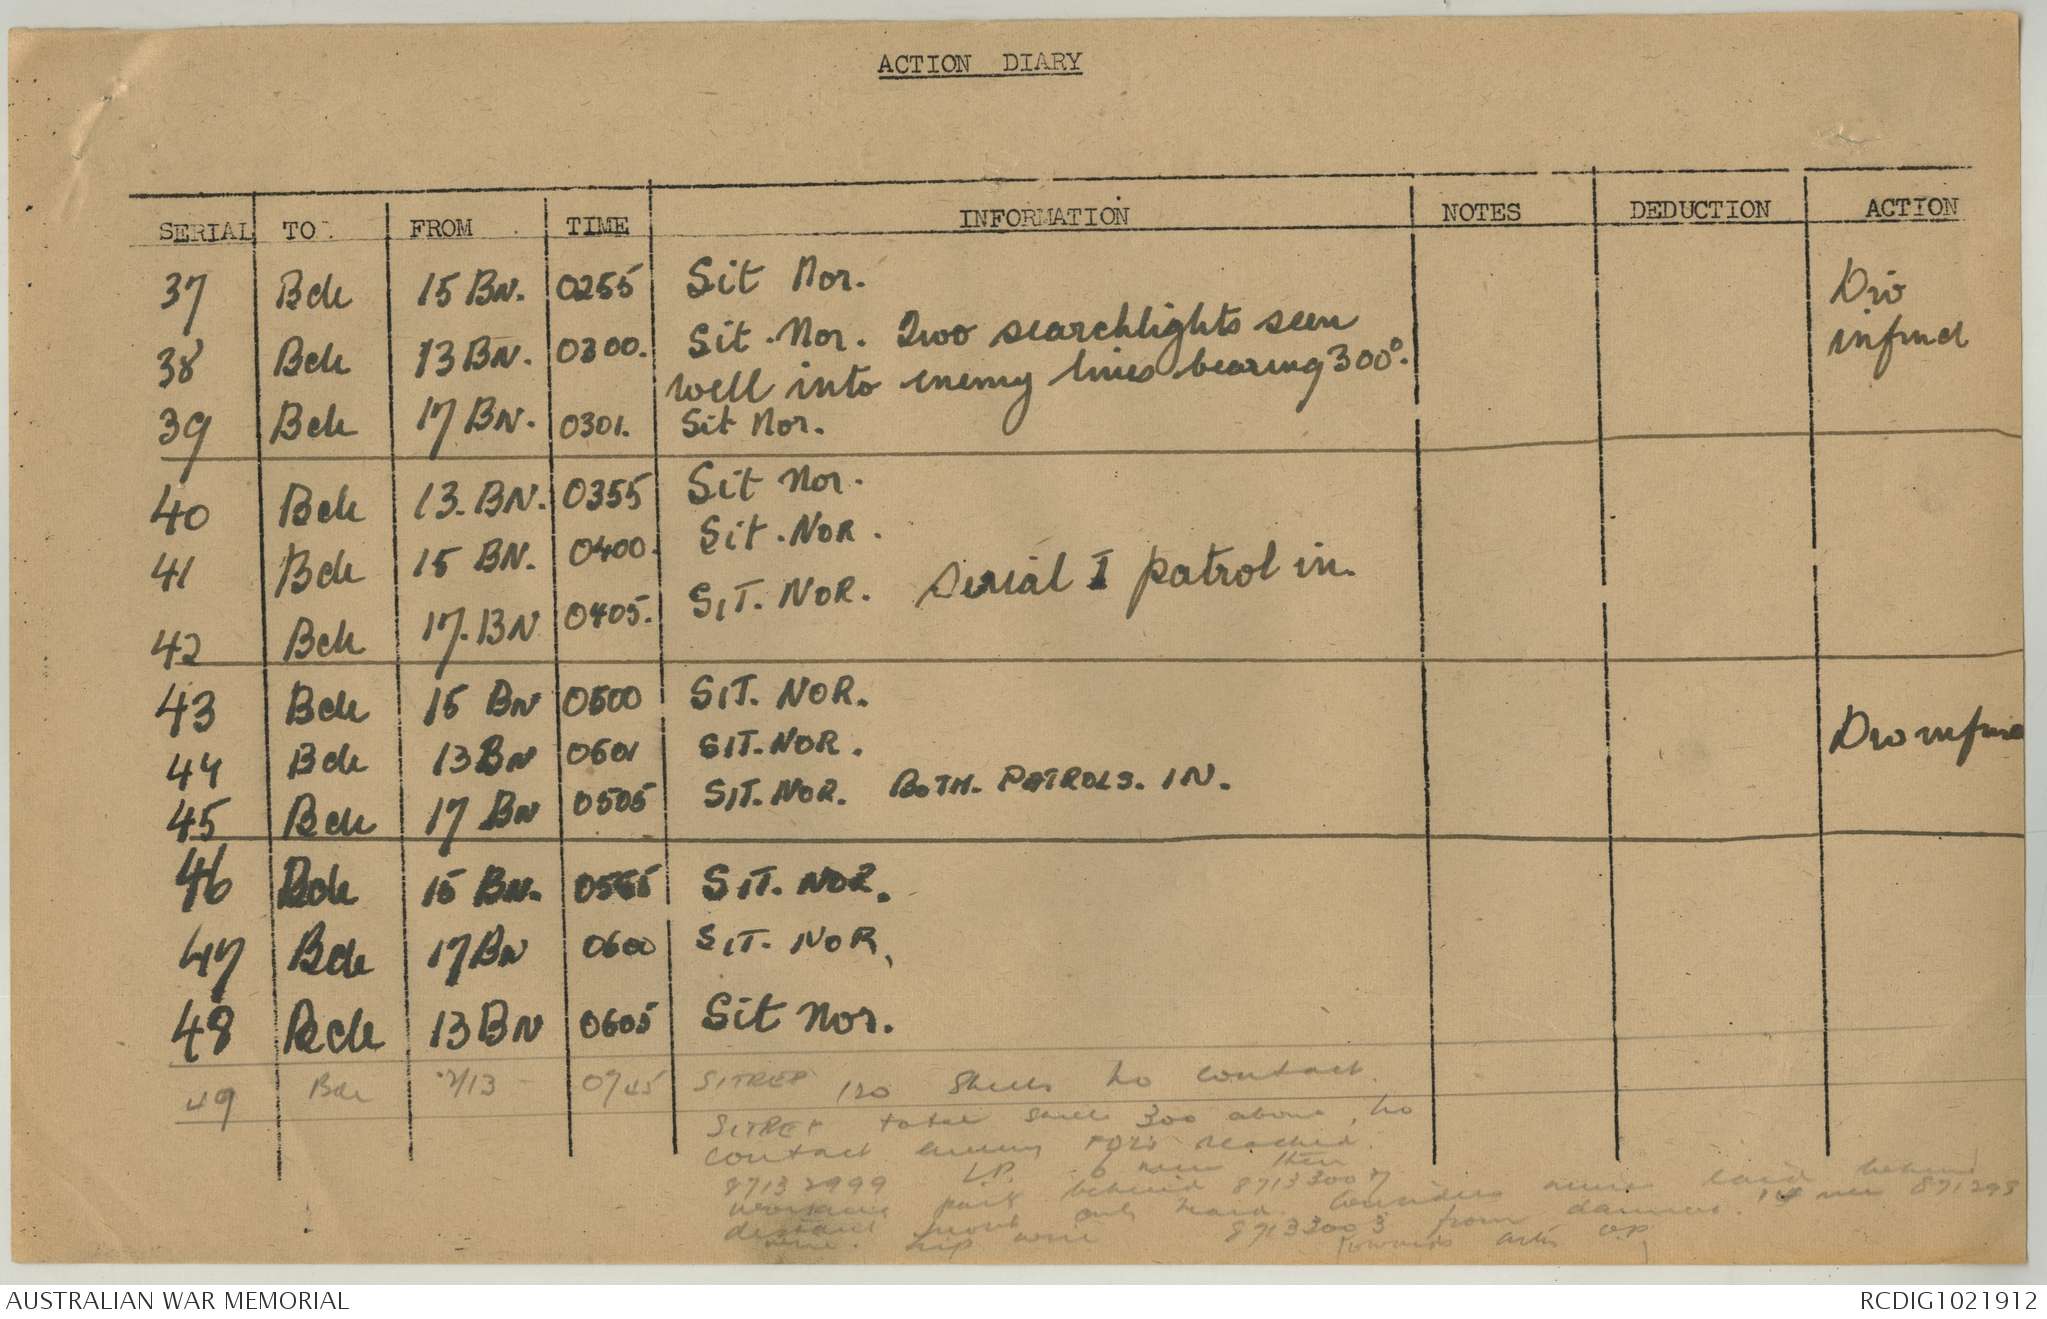 ACTION DIARY
SERIAL TO FROM TIME INFORMATION NOTES DEDUCTION ACTION
37 Bde 15 BN. 0255 Sit Nor. Div
38 Bde 13 BN. 0300. Sit. Nor. Two searchlights seen infmd
well into enemy lines bearing 300°.
39 Bde 17 BN. 0301. Sit Nor.
40 Bde 13. BN. 0355 Sit Nor.
41 Bde 15 BN. 0400. Sit. NOR.
42 Bde 17. BN 0405. SIT. NOR. Serial 1 patrol in.
43 Bde 15 BN 0500 SIT. NOR. Div infmd
44 Bde 13 BN 0501 SIT. NOR.
45 Bde 17 BN 0505 SIT. NOR. BOTH. PATROLS. IN.
46 Bde 15 BN. 0555 SIT. NOR.
47 Bde 17 BN 0600 SIT. NOR.
48 Bde 13 BN 0605 Sit Nor.
49 Bde 0745 SITREP 120 shells no contact.
SITREP total shells 300 above, no
contact enemy reached.
87132999 L.P.
behind 87133007 behind
part only heard. laid 871293
distant 87133003 from
wire. wire towards arty O.P.
AUSTRALIAN WAR MEMORIAL RCDIG1021912